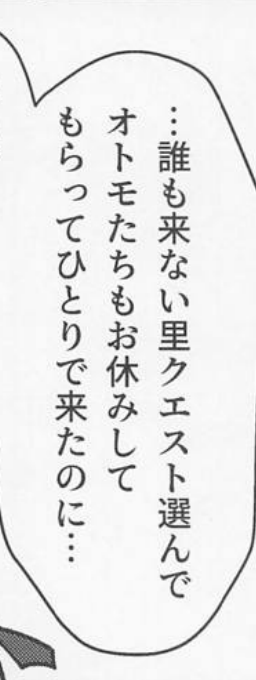 …誰も来ない里クエスト選んで
オトモたちもお休みして
もらってひとりで来たのに…